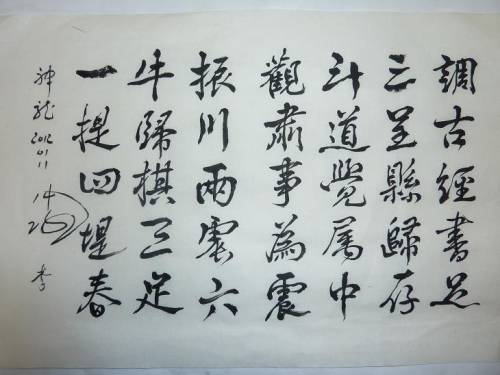 調古經書足
三呈縣歸存
斗道覺属中
觀肅事為震
振川兩震六
牛歸棋三足
一提四堤春
神龍 2012.01.11
李